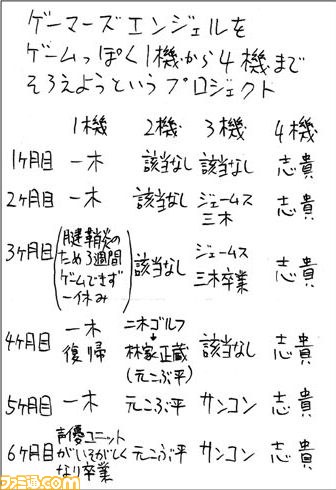 ゲーマーズエンジェルを
ゲームっぽく1機から4機まで
そろえようというプロジェクト
1機 2機 3機 4機
1ヶ月目 一木 該当なし 該当なし 志貴
2ヶ月目 一木 該当なし ジェームス三木 志貴
3ヶ月目 (腱鞘炎のため3週間ゲームできず一休み) 該当なし ジェームス三木卒業 志貴
4ヶ月目 一木復帰 二木ゴルフ→林家正蔵(元こぶ平) 該当なし 志貴
5ヶ月目 一木 元こぶ平 サンコン 志貴
6ヶ月目 声優ユニットがいそがしくなり卒業 元こぶ平 サンコン 志貴
ファミ通.com